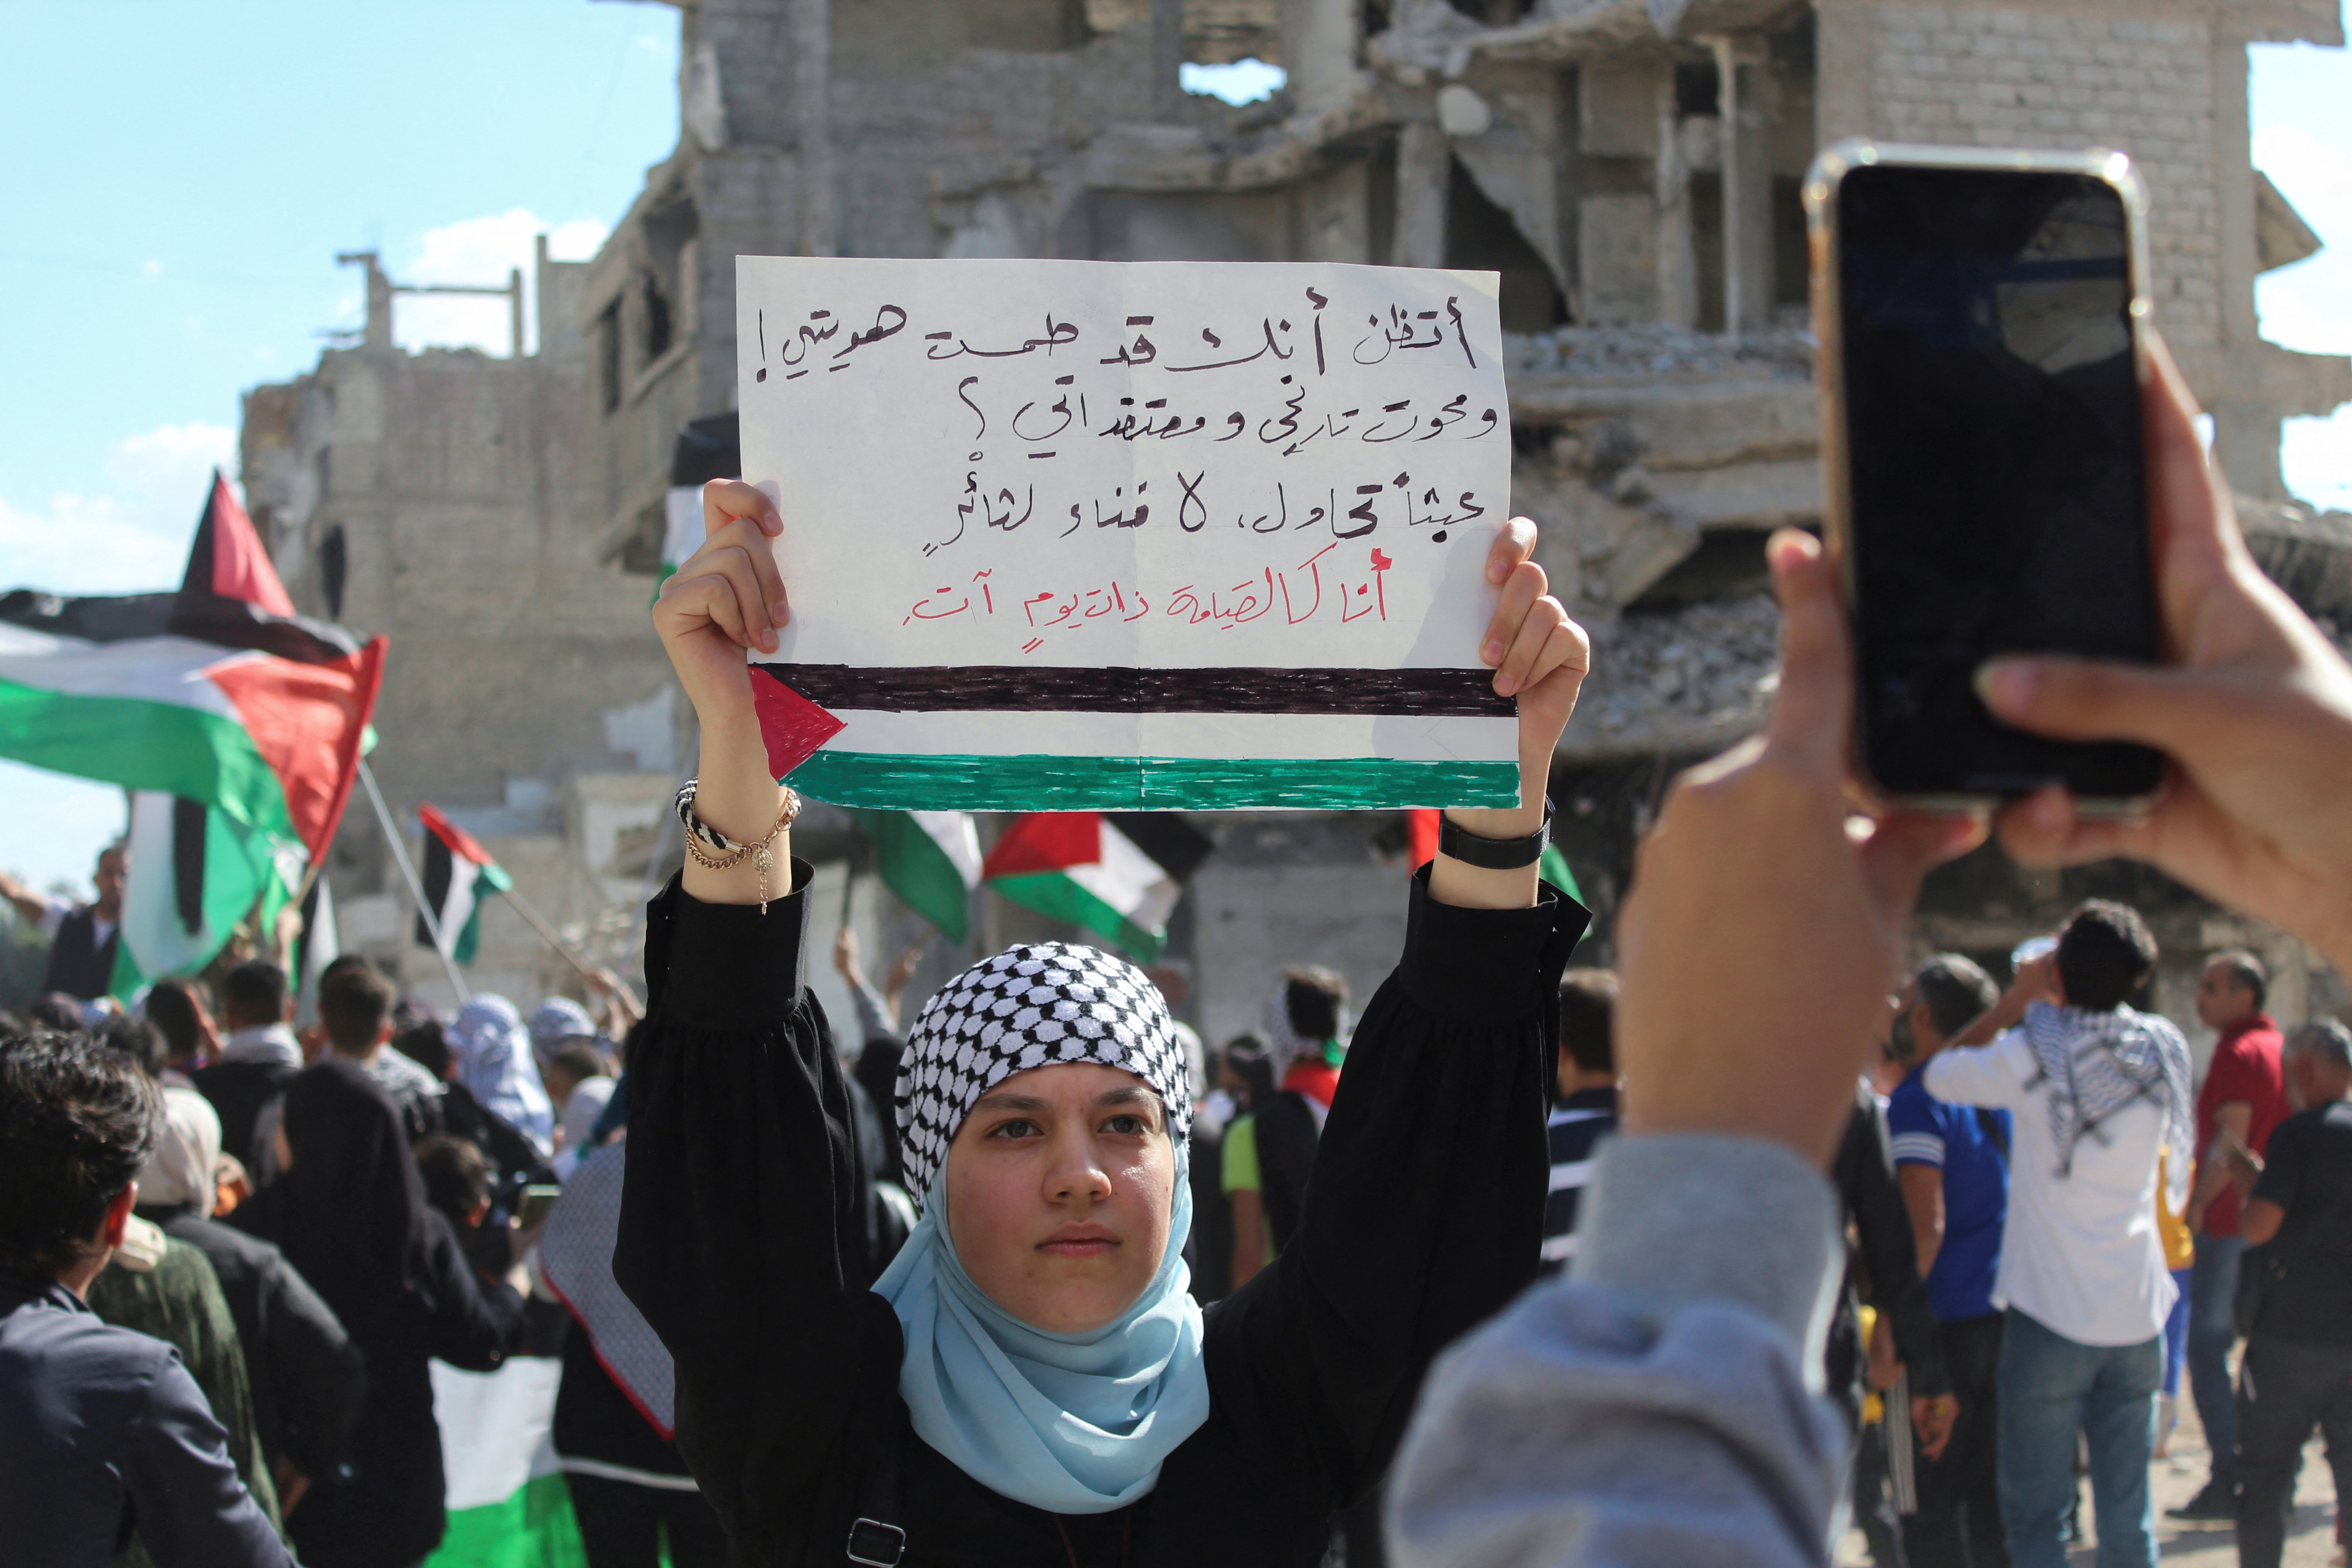 أتظن أنك قد طمست هويتي!
ومحوت تاريخي ومعتقداتي؟
عبثاً تحاول، لا فناء لثائْرٍ
أنا كالقيامة ذات يومٍ آت.